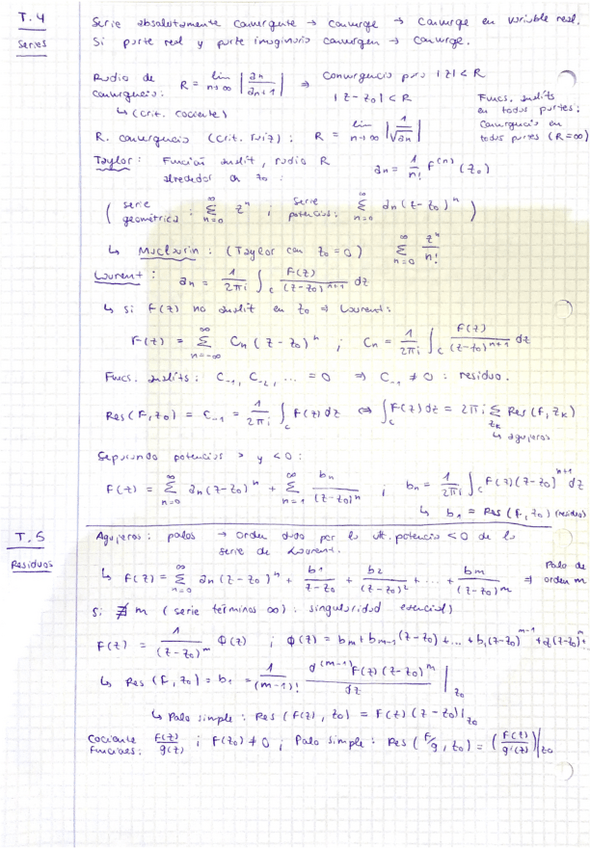 T.4
Series
Serie absolutamente convergente → converge → converge en variable real.
Si parte real y parte imaginaria convergen → converge.
Radio de convergencia: R = lim n→∞ |an / an+1| ⇒ Convergencia para |z| < R
|z - z0| < R
↳ (crit. cociente)
Funcs. analíts en todas partes: Convergencia en todas partes (R=∞)
R. convergencia (crit. raíz): R = lim n→∞ |1/√an|
Taylor: Función analít, radio R alrededor de z0: an = 1/n! F^(n)(z0)
(serie geométrica: Σ n=0 ∞ z^n ; serie potencias: Σ n=0 ∞ an(z-z0)^n)
↳ Maclaurin: (Taylor con z0=0) Σ n=0 ∞ z^n/n!
Laurent: an = 1/2πi ∫c F(z)/(z-z0)^n+1 dz
↳ si F(z) no analít en z0 ⇒ Laurent:
F(z) = Σ n=-∞ ∞ Cn (z-z0)^n ; Cn = 1/2πi ∫c F(z)/(z-z0)^n+1 dz
Funcs. analíts: C-1, C-2, ... = 0 ⇒ C-1 ≠ 0: residuo.
Res(F, z0) = C-1 = 1/2πi ∫c F(z)dz ⇔ ∫c F(z)dz = 2πi Σ zk Res(f, zk)
↳ agujeros
Separando potencias > y <0:
F(z) = Σ n=0 ∞ an(z-z0)^n + Σ n=1 ∞ bn/(z-z0)^n ; bn = 1/2πi ∫c F(z)(z-z0)^n+1 dz
↳ b1 = Res(f, z0) (residuo)
T.5
Residuos
Agujeros: polos → orden dado por la ult. potencia <0 de la serie de Laurent.
↳ F(z) = Σ n=0 ∞ an(z-z0)^n + b1/z-z0 + b2/(z-z0)^2 + ... + bm/(z-z0)^m ⇒ Polo de orden m
Si ∄ m (serie términos ∞): singularidad esencial)
F(z) = 1/(z-z0)^m Φ(z) ; Φ(z) = bm+bm-1(z-z0)+...+b1(z-z0)^m-1+a(z-z0)^m...
↳ Res(F, z0) = b1 = 1/(m-1)! d^(m-1)F(z)(z-z0)^m/dz |z0
↳ Polo simple: Res(F(z), z0) = F(z)(z-z0)|z0
Cociente funciones: F(z)/g(z) ; F(z0) ≠ 0 ; Polo simple: Res(F/g, z0) = (F(z)/g'(z))|z0